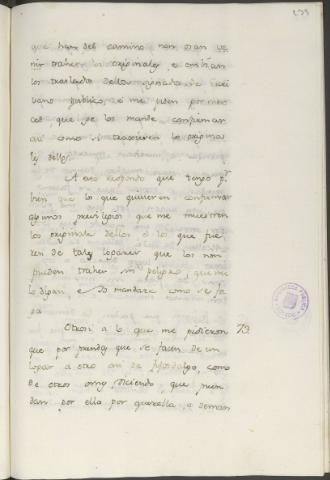 239
que han del camino non osan ve
nir traher los originales, e embian
los traslados dellos signados de escri
bano publico, e me piden por mer
ced que se los mande confirmar
asi como si troxieren los origina
les dellos.
A esto respondo que tengo por
bien que lo que quisieren confirmar
algunos previlegios que me muestren
los originales dellos e los que fue
ren de tales logares que los non
pueden traher sin peligro, que me
lo digan e Yo mandare como se fa
ga
Otrosi a lo que me pidieron 73
que por prendas que se facen de un
logar a otro asi de fijosdalgo, como
de otros omes diciendo, que pren
dan por ella por querella, e deman